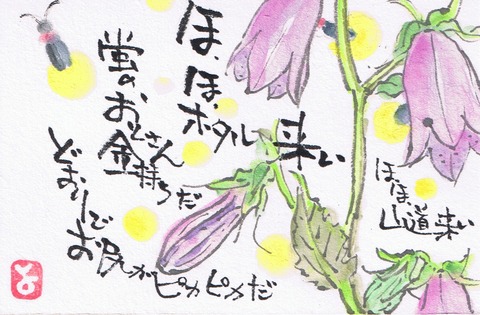 ほ、ほ、
ホタル 来い
蛍のおとさん
金持ちだ
どおりで
お尻がピカピカだ
ほ、ほ、
山道来い
と